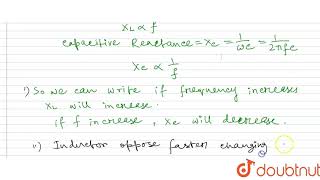 XL ∝ f
Capacitive Reactance = Xc = 1/ωc = 1/2πfc
Xc ∝ 1/f
i) So we can write if frequency increases
XL will increase.
if f increase, Xc will decrease.
ii) Inductor oppose faster changing
doubtnut